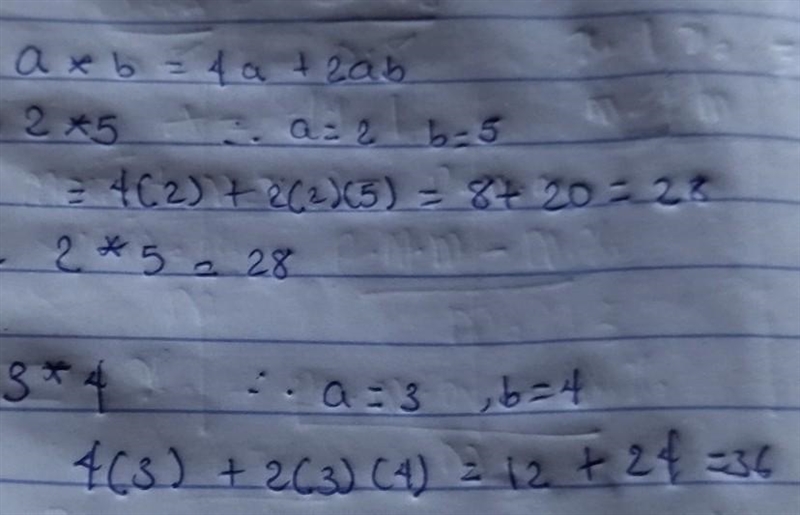 a * b = 4a + 2ab
2 * 5 ∴ a = 2 b = 5
= 4(2) + 2(2)(5) = 8 + 20 = 28
2 * 5 = 28
3 * 4 ∴ a = 3 , b = 4
4(3) + 2(3)(4) = 12 + 24 = 36